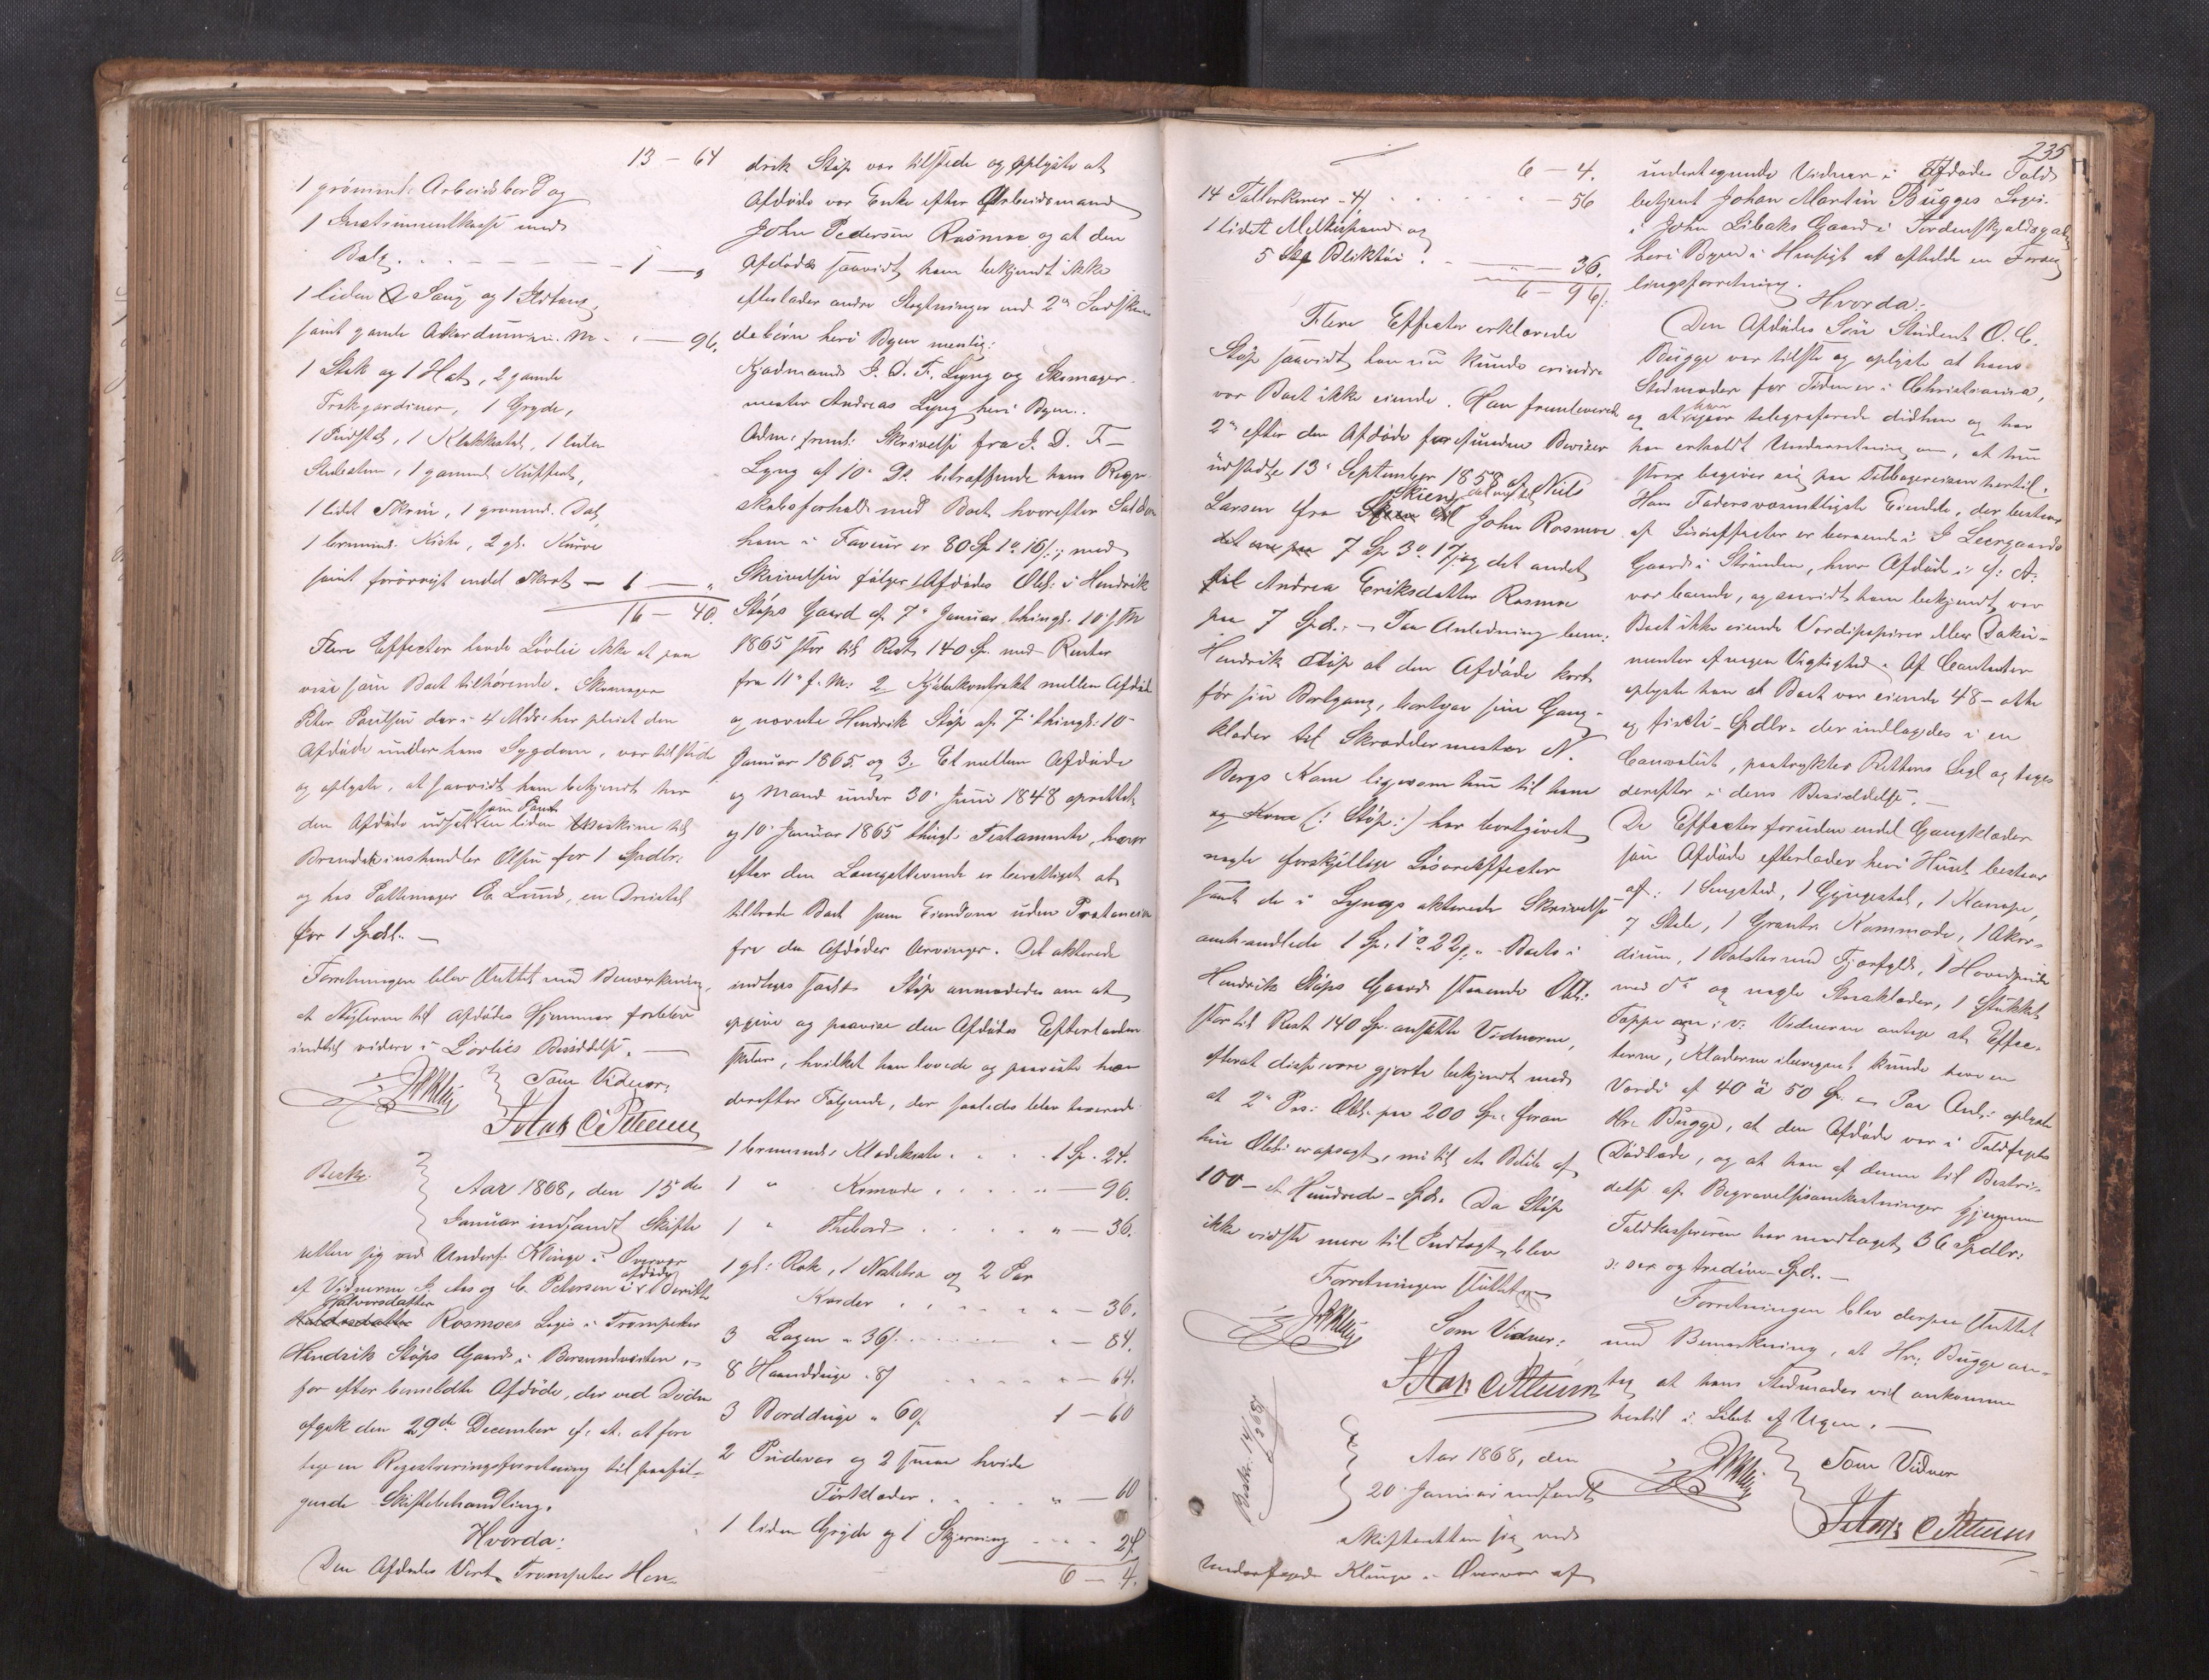 13 - 64
1 grønmalt Arbeidsbord og
1 Instrumentkasse med
Bælg . . - - - - - 1 - "
1 liden Saug og 1 Ildtang,
samt gamle Akkordium m. m. . " - 96.
1 Stok og 1 Hat, 2 gamle
Trækgardiner, 1 Gryde,
1 Fadfat, 1 Klokkestol, 1 liden
1 gammel Kuffert,
1 lidet Skrin, 1 grønmal.
1 brunmal. Kiste, 2 gl. Kurve
samt forøvrigt endel Skrot - 1 - "
16 - 40.
Flere Effecter havde Løvlie ikke at paa
vise som Boet tilhørende. Skomager
Peter Paulsen der i 4 Mdr: har pleiet den
Afdøde under hans Sygdom, var tilstede
og oplyste, at saavidt ham bekjendt har
den Afdøde udsat som Pant en liden Maskine til
Brændeviinshandler Olsen for 1 Spdlr.
og hos Pottemager E. Lund, en
for 1 Spdl. -
Forretningen blev sluttet med Bemærkning,
at Nøglerne til Afdødes Gjemmer forblev
indtil videre i Løvlies Besiddelse. -
Som Vidner:
J Aas C Petersen
Beskr.
Aar 1868, den 15de
Januar indfandt Skifte
retten sig ved Underf. Klinge i Overvær
af Vidnerne J. Aas og C. Petersen i afdøde Berithe
Halvorsdatter Rosmoes Logis i Trompeter
Hendrik Støps Gaard i Bersvendveiten,
for efter bemeldte Afdøde, der ved Døden
afgik den 29de December f. A. at fore
tage en Registreringsforretning til paaføl-
gende Skiftebehandling.
Hvorda:
Den Afdødes Vert, Trompeter Hen-
drik Støp var tilstede og oplyste at
Afdøde var Enke efter Arbeidsmand
John Pedersen Rosmoe og at den
Afdøde saavidt ham bekjendt ikke
efterlader andre Slægtninger end 2de Sødsken
debørn heri Byen nemlig:
Kjødmand J. D. F. Lyng og Skomager-
mester Andreas Lyng heri Byen.
Adm: freml: Skrivelse fra J. D. F.
Lyng af 10. Ds. betræffende hans Regn-
skabsforhold med Boet hvorefter Saldo
hans i Faveur er 80 Sp 1 o 16 s; med
Skrivelsen følger 1/ Afdødes Obl: i Hendrik
Støps Gaard af 7. Januar thingl. 10 s. M
1865 stor til Rest 140 Sp. med Renter
fra 11. f. M: 2/ Kjøbekontrakt mellem Afdøde
og nævnte Hendrik Støp af 7. thingl: 10.
Januar 1865. og 3/ Et mellem Afdøde
og Mand under 30. Juni 1848 oprettet
og 10. Januar 1865 thingl. Testamente, hvor
efter den Længstlevende er berettiget at
tiltræde Boet som Eiendom uden Prætension
fra den Afdødes Arvinger. Det akterede
indtages foran. Støp anmodedes om at
opgive og paavise den Afdødes Efterladen
skaber, hvilket han lovede og paaviste han
derefter Følgende, der saaledes blev taxeret
1 brunmalt Klædekiste . . . . 1 Sp. 24.
1 " Komode . . . . . " - 96.
1 " Thebord . . . . . " - 36.
1 gl: Rok, 1 Natlika og 2 Par
Karder . . . . . " - 36.
3 Lagen " 36 s. . . . . " - 84.
8 Haandduge " 8 s . . . . " - 64.
3 Borddüge " 60 s. 1 - 60
2 Pudevar og 2 smaa hvide
Forklæder . . . . " - 60
1 liden Gryde og 1 Skjerning . . . . 24.
6 - 4.
235
6 - 4.
14 Tallerkener - 4 s . . . . " - 56
1 lidet Melkespand og
5 Stp Bliktøi . . - - " - 36.
6 - 96 s.
Flere Effecter erklærede
Støp saavidt han nu kunde erindre
var Boet ikke eiende. Han fremleverede
2de efter den Afdøde forefundne Beviser
udstedte 13. September 1858 af Niels
Larsen fra Skien til John Rosmoe
det ene paa 7 Sp 3 o 17 s; og det andet
til Andrea Eriksdatter Rosmoe
paa 7 Spd. - Paa Anledning bem:
Hendrik Støp at den Afdøde kort
før sin Bortgang, bortgav sine Gang-
klæder til Skræddermester N.
Bergs Kone ligesom hun til ham
og Kone (: Støp :) har bortgivet
nogle forskjellige Løsøreeffecter
samt de i Lyngs akterede Skrivelse
omhandlede 1 Sp. 1 o 22 s. - Boets i
Hendrik Støps Gaard staaende Obl:
stor til Rest 140 Sp. ansatte Vidnerne,
efterat disse vare gjorte bekjendt med
at 2de Pr: Obl. paa 200 Sp. foran
hin Obl: er opsagt, nu til et Beløb af
100 - et Hundrede - Spd. Da Støp
ikke vidste mere til Indtægt, blev
Forretningen sluttet
Som Vidner:
J Aas C Petersen
Beskr. 14/2 68
Aar 1868, den
20. Januar indfandt
Skifteretten sig ved
Underfoged Klinge i Overvær af
undertegnede Vidner i Afdøde Told-
betjent Johan Martin Bugges Logis
i John Libaks Gaard i Tordenskjoldsgaden
heri Byen i Hensigt at afholde en Forseg
lingsforretning.
Hvorda:
Den Afdødes Søn Student O. C.
Bugge var tilstede og oplyste at hans
Stedmoder for Tiden er i Christiania,
og at han telegraferede didhen og har
han erholdt Underretning om, at hun
strax begiver sig paa Tilbagereisen hertil.
Hans Faders væsentligste Eiendele, der bestaar
af Løsøreffecter er beroende i J Leergaards
Gaard i Strinden, hvor Afdøde i f: A.
var boende, og saavidt ham bekjendt, var
Boet ikke eiende Værdipapirer eller Doku-
menter af nogen Vigtighed. Af Contanter
oplyste han at Boet var eiende 48 - otte
og firti - Spdlr. der indlagdes i en
Convolut, paatryktes Rettens Segl og toges
derefter i dens Besiddelse. -
De Effecter foruden endel Gangklæder
som Afdøde efterlader heri Huset bestaar
af: 1 Sengsted, 1 Gyngestol, 1 Kanape,
7 Stole, 1 Kommode, 1 Akor-
dium, 1 Bolster med Fjærfyld, 1 Hovedpude
med do og nogle Sengklæder, 1 stukket
Teppe m: v: Vidnerne antoge at Effec-
terne, Klæderne iberegnet kunde have en
Værdi af 40 à 50 Sp. - Paa Anl: oplyste
Hr. Bugge, at den Afdøde var i Toldfogdens
Dødlade, og at han af denne til Bestri-
delse af Begravelsesomkostninger gjennem
Toldkassereren har modtaget 36 Spdlr:
ɔ: sex og tredive Spd. -
Forretningen blev derpaa sluttet
med Bemærkning, at Hr: Bugge an-
tog at hans Stedmoder vil ankomme
hertil i Løbet af Ugen. -
Som Vidner
J Aas C Petersen